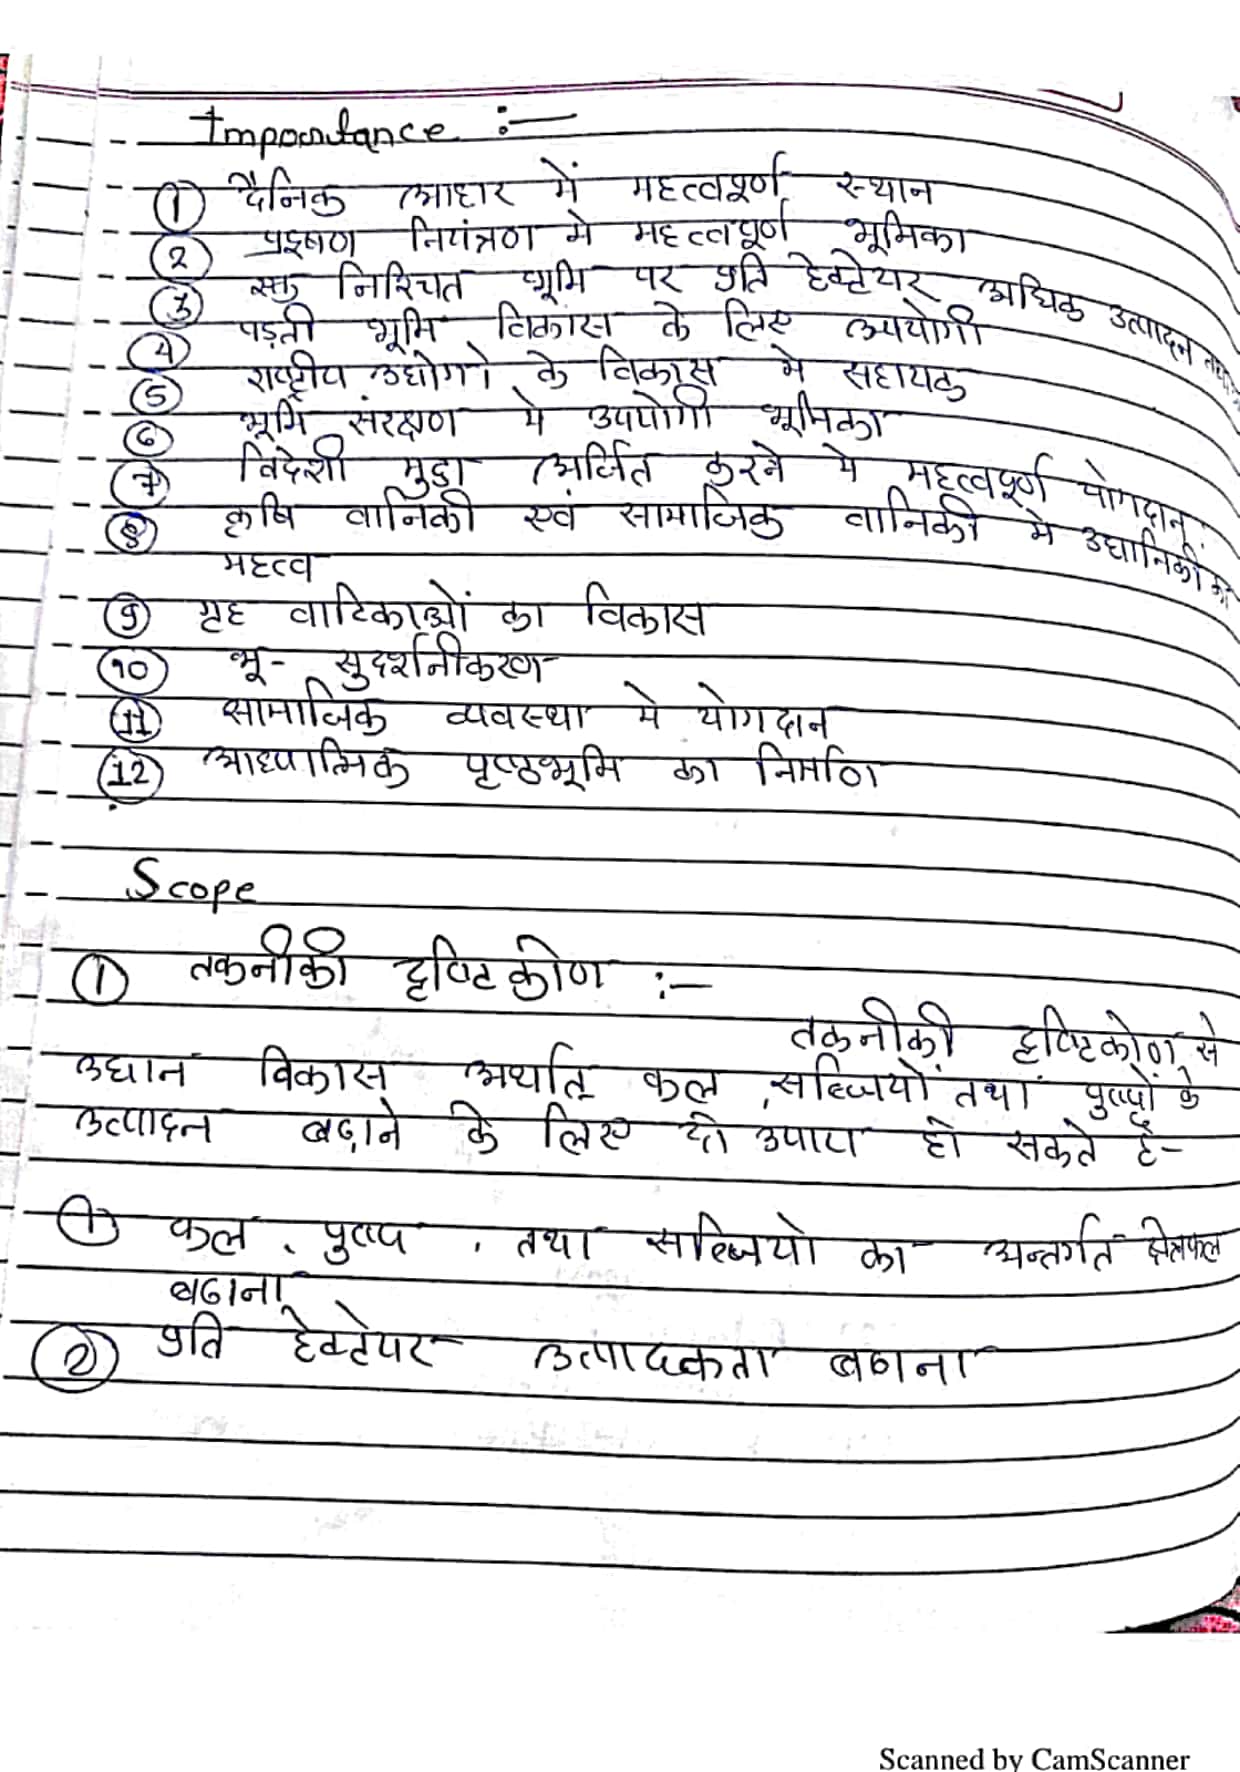 Importance :—
① दैनिक आहार में महत्वपूर्ण स्थान
② प्रदूषण नियंत्रण मे महत्वपूर्ण भूमिका
③ एक निश्चित भूमि पर प्रति हेक्टेयर अधिक उत्पादन
④ पड़ती भूमि विकास के लिए उपयोगी
⑤ राष्ट्रीय उधोगो के विकास मे सहायक
⑥ भूमि संरक्षण मे उपयोगी भूमिका
⑦ विदेशी मुद्रा अर्जित करने मे महत्वपूर्ण योगदान
⑧ कृषि वानिकी एवं सामाजिक वानिकी मे उधानिकी का
महत्व
⑨ गृह वाटिकाओं का विकास
⑩ भू- सुदर्शनीकरण
⑪ सामाजिक व्यवस्था मे योगदान
⑫ आध्यात्मिक पृष्ठभूमि का निर्माण
Scope
① तकनीकी दृष्टिकोण :—
तकनीकी दृष्टिकोण से
उधान विकास अर्थात् फल, सब्जियों तथा पुष्पों के
उत्पादन बढ़ाने के लिए दो उपाय हो सकते है-
① फल, पुष्प, तथा सब्जियो का अन्तर्गत क्षेत्रफल
बढाना
② प्रति हेक्टेयर उत्पादकता बढाना
Scanned by CamScanner